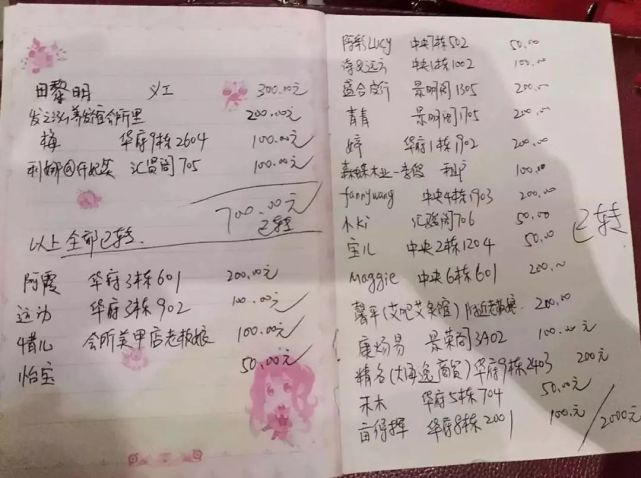 田黎明 义工 300.00元
200.00元
梅 华府9栋2604 100.00元
汇贤阁705 100.00元
700.00元
已转
以上全部已转.
阿霞 华府3栋601 200.00元
远劝 华府3栋902 100.00元
惜儿 会所美甲店老板娘 100.00元
怡宝 50.00元
阿彩Lucy 中央7栋502 50.00
中央1栋1002 100.00
景明阁1305 200.00
青青 景明阁1705 200.00
婷 华府1栋1902 200.00
森蝶木业 100.00
fannywang 中央4栋1903 200.00
木Ki 汇贤阁706 50.00
宝儿 中央2栋1204 50.00
已转
Maggie 中央6栋601 200.00
馨平(艾吧艾灸馆) 200.00
康场易 景荣阁3A02 100.00元
华府9栋2403 200元
禾木 华府5栋704 50.00元
华府8栋2001 100.元
2000元